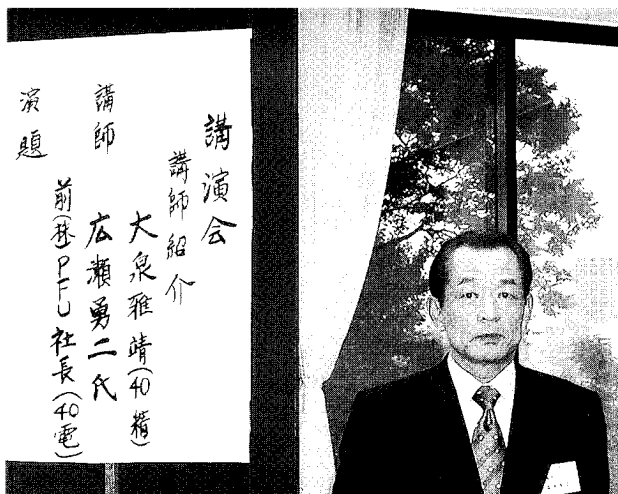 講演会
講師紹介
大泉雅靖(40精)
講師
広瀬勇二氏
前(株)PFU社長(40電)
演題